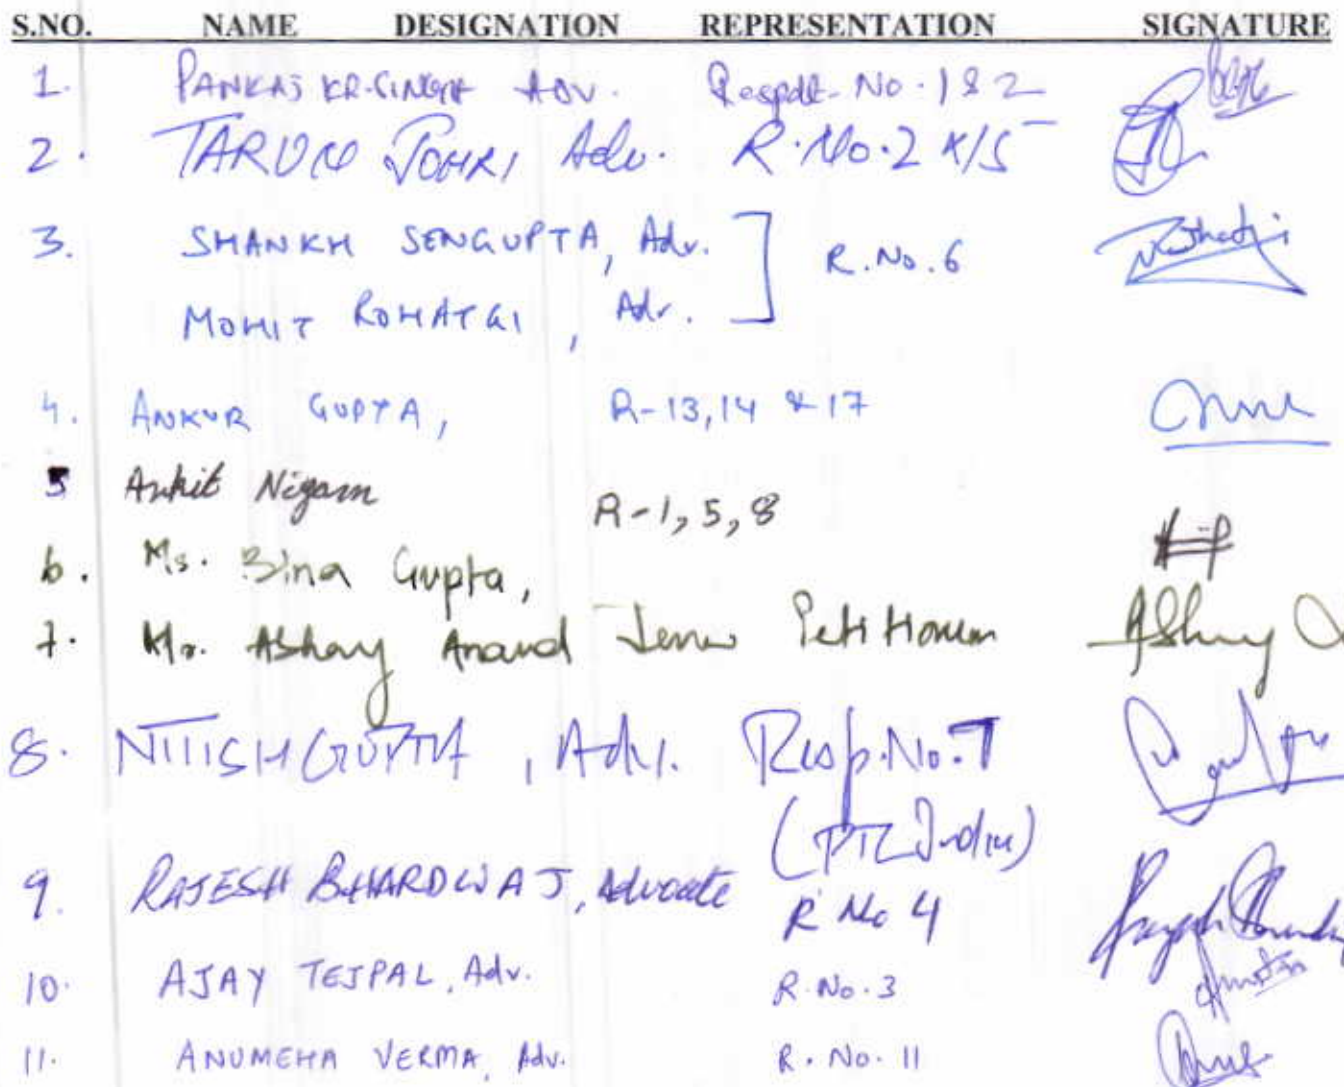 S.NO. NAME DESIGNATION REPRESENTATION SIGNATURE
1. PANKAJ KR. SINGH ADV. Respdt. No. 1 & 2
2. TARUN JOHRI Adv. R. No. 2
3. SHANKH SENGUPTA, Adv. R. No. 6
MOHIT ROHATGI, Adv.
4. ANKUR GUPTA, R-13,14 & 17
5 Ankit Nigam R-1, 5, 8
6. Ms. Bina Gupta,
7. Mr. Abhay Anand Jena Petitioner Abhay
8. NITISH GUPTA, Adv. Resp. No. 7
(PTC India)
9. RAJESH BHARDWAJ, Advocate R No 4
10. AJAY TEJPAL, Adv. R. No. 3
11. ANUMEHA VERMA, Adv. R. No. 11